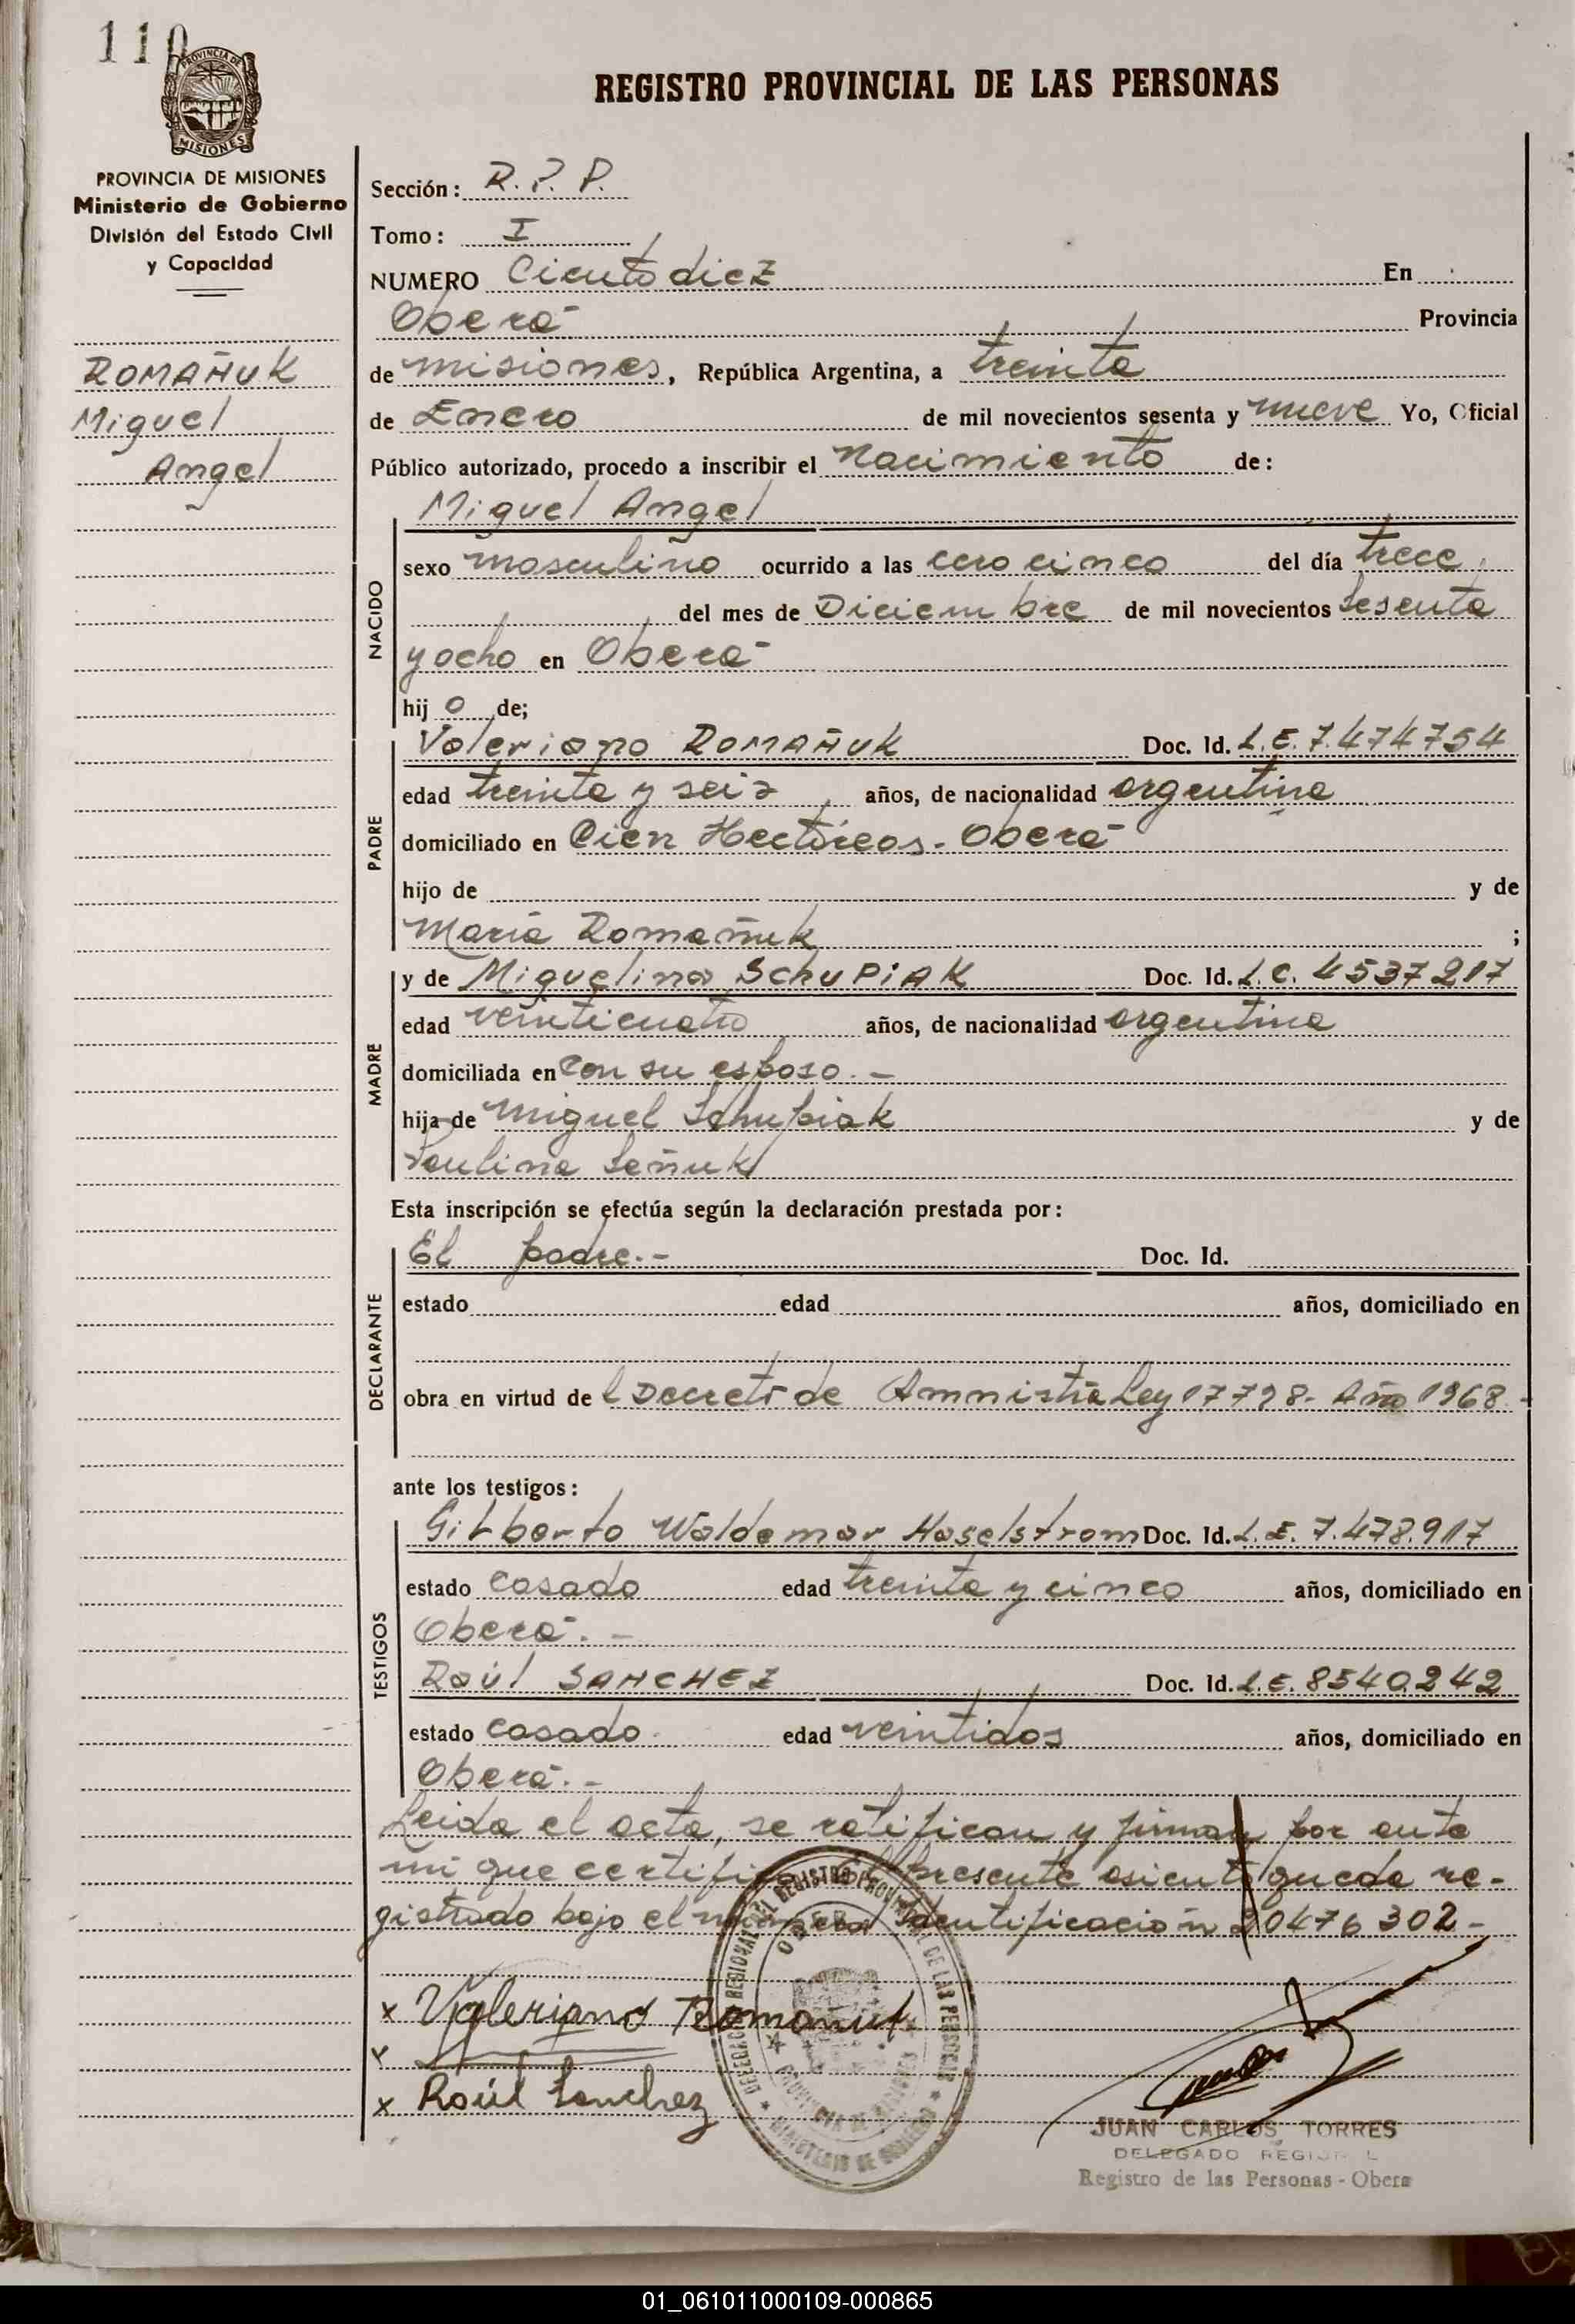 110
PROVINCIA DE
MISIONES
REGISTRO PROVINCIAL DE LAS PERSONAS
PROVINCIA DE MISIONES
Ministerio de Gobierno
División del Estado Civil
y Capacidad
ROMAÑUK
Miguel
Angel
Sección: R.P.P.
Tomo: I
NUMERO Ciento diez En
Oberá Provincia
de misiones, República Argentina, a treinta
de Enero de mil novecientos sesenta y nueve Yo, Oficial
Público autorizado, procedo a inscribir el Nacimiento de:
Miguel Angel
NACIDO
sexo masculino ocurrido a las cero cinco del día trece
del mes de Diciembre de mil novecientos sesenta
y ocho en Oberá
hij o de;
PADRE
Valeriano ROMAÑUK Doc. Id. L.E. 7.474754
edad treinta y seis años, de nacionalidad argentina
domiciliado en Cien Hectáreas. Oberá
hijo de y de
María Romañuk ;
MADRE
y de Miguelina SCHUPIAK Doc. Id. L.C. 4537217
edad veinticuatro años, de nacionalidad argentina
domiciliada en con su esposo.-
hija de Miguel Schupiak y de
Paulina Señuk
Esta inscripción se efectúa según la declaración prestada por:
DECLARANTE
El padre.- Doc. Id.
estado edad años, domiciliado en
obra en virtud de l Decreto de Amnistía Ley 17798- Año 1968.-
ante los testigos:
TESTIGOS
Gilberto Waldemar Haselstrom Doc. Id. L.E. 7.478.917
estado casado edad treinta y cinco años, domiciliado en
Oberá.-
Raúl SANCHEZ Doc. Id. L.E. 8540.242
estado casado edad veintidos años, domiciliado en
Oberá.-
Leida el acta, se ratifican y firman por ante
mi que certifico El presente asiento queda re-
gistrado bajo el número identificación 20476302-
x Valeriano Romañuk
x Raúl Sanchez
DELEGACION REGIONAL DEL REGISTRO PROVINCIAL DE LAS PERSONAS
OBERA
PROVINCIA DE MISIONES
MINISTERIO DE GOBIERNO
JUAN CARLOS TORRES
DELEGADO REGIONAL
Registro de las Personas - Obera
01_061011000109-000865